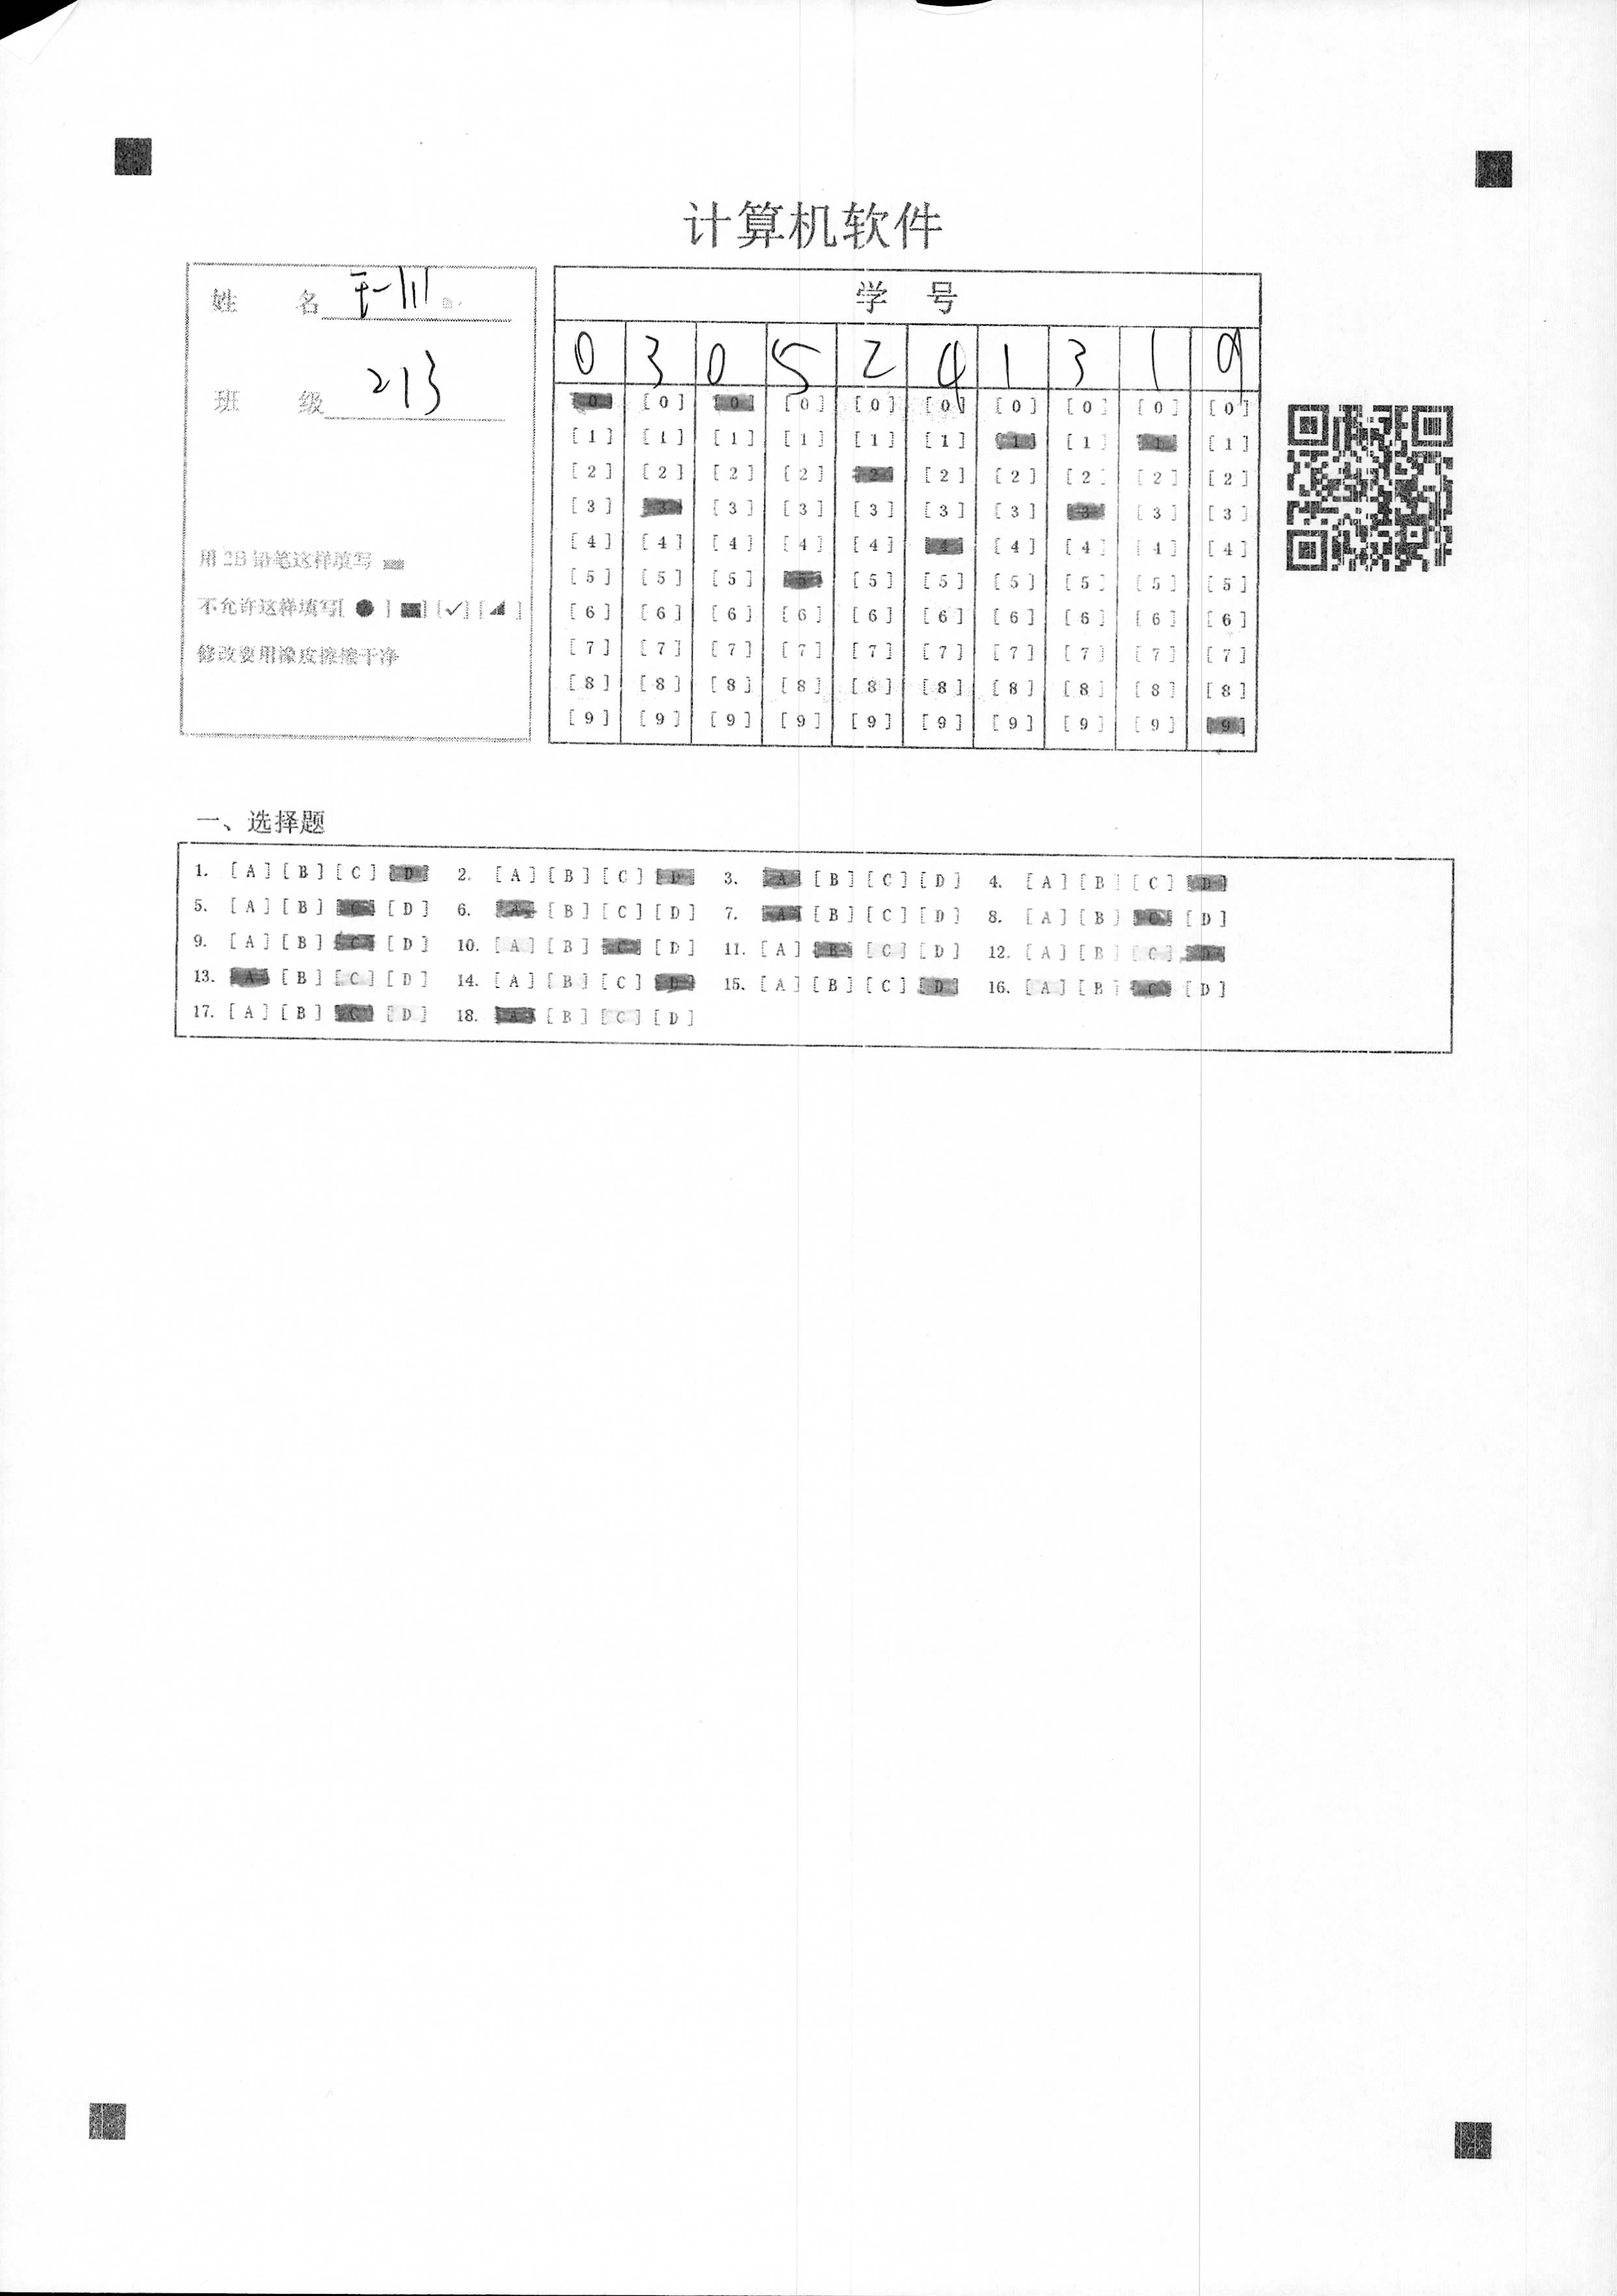 计算机软件
姓 名
班 级 213
用2B铅笔这样填写
不允许这样填写[●] ■] [✓] [◢]
修改要用橡皮擦擦干净
学 号
0 3 0 5 2 4 1 3 1 9
[0] [0] [0] [0] [0] [0] [0] [0] [0] [0]
[1] [1] [1] [1] [1] [1] [1] [1] [1] [1]
[2] [2] [2] [2] [2] [2] [2] [2] [2] [2]
[3] [3] [3] [3] [3] [3] [3] [3] [3] [3]
[4] [4] [4] [4] [4] [4] [4] [4] [4] [4]
[5] [5] [5] [5] [5] [5] [5] [5] [5] [5]
[6] [6] [6] [6] [6] [6] [6] [6] [6] [6]
[7] [7] [7] [7] [7] [7] [7] [7] [7] [7]
[8] [8] [8] [8] [8] [8] [8] [8] [8] [8]
[9] [9] [9] [9] [9] [9] [9] [9] [9] [9]
一、选择题
1. [A] [B] [C] [D] 2. [A] [B] [C] [D] 3. [A] [B] [C] [D] 4. [A] [B] [C] [D]
5. [A] [B] [C] [D] 6. [A] [B] [C] [D] 7. [A] [B] [C] [D] 8. [A] [B] [C] [D]
9. [A] [B] [C] [D] 10. [A] [B] [C] [D] 11. [A] [B] [C] [D] 12. [A] [B] [C] [D]
13. [A] [B] [C] [D] 14. [A] [B] [C] [D] 15. [A] [B] [C] [D] 16. [A] [B] [C] [D]
17. [A] [B] [C] [D] 18. [A] [B] [C] [D]